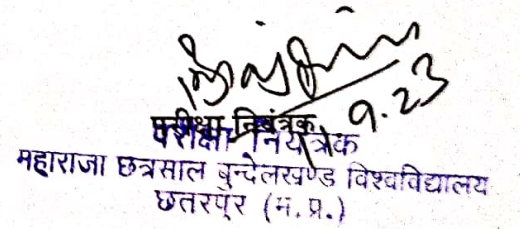 9.23
परीक्षा नियंत्रक
परीक्षा नियंत्रक
महाराजा छत्रसाल बुन्देलखण्ड विश्वविद्यालय
छतरपुर (म.प्र.)